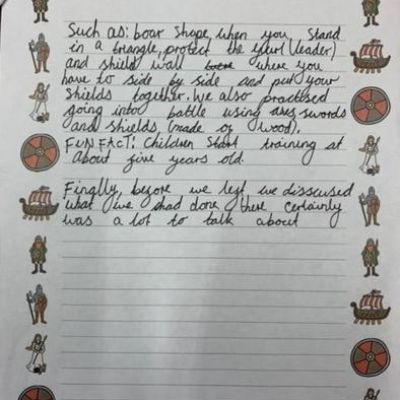 Such as: boar shape, when you stand
in a triangle, protect the yarl (leader)
and shield wall where you
have to side by side and put your
shields together. We also practised
going into battle using swords
and shields, (made of wood).
FUN FACT: Children start training at
about five years old.
Finally, before we left we disscused
what we had done, there certainly
was a lot to talk about